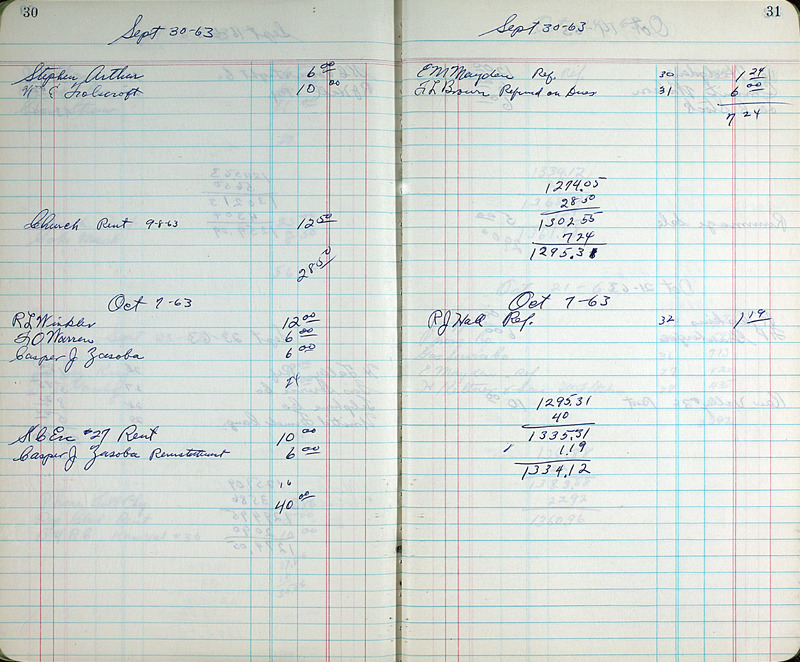 30
Sept 30-63
Stephen Arthur 6 00
Wm E 10 00
Church Rent 9-8-63 12 50
28 50
Oct 7-63
R L Winkler 12 00
F O Warren 6 00
Casper J Zasoba 6 00
24
K C Enc #27 Rent 10 00
Casper J Zasoba Reinstatement 6 00
16
40 00
31
Sept 30-63
E M Mayden Ref. 30 1 24
F L Brown Refund on Dues 31 6 00
7 24
1274.05
28 50
1302 55
7 24
1295.31
Oct 7-63
R J Hall Ref. 32 1 19
1295.31
40
1335.31
1.19
1334.12